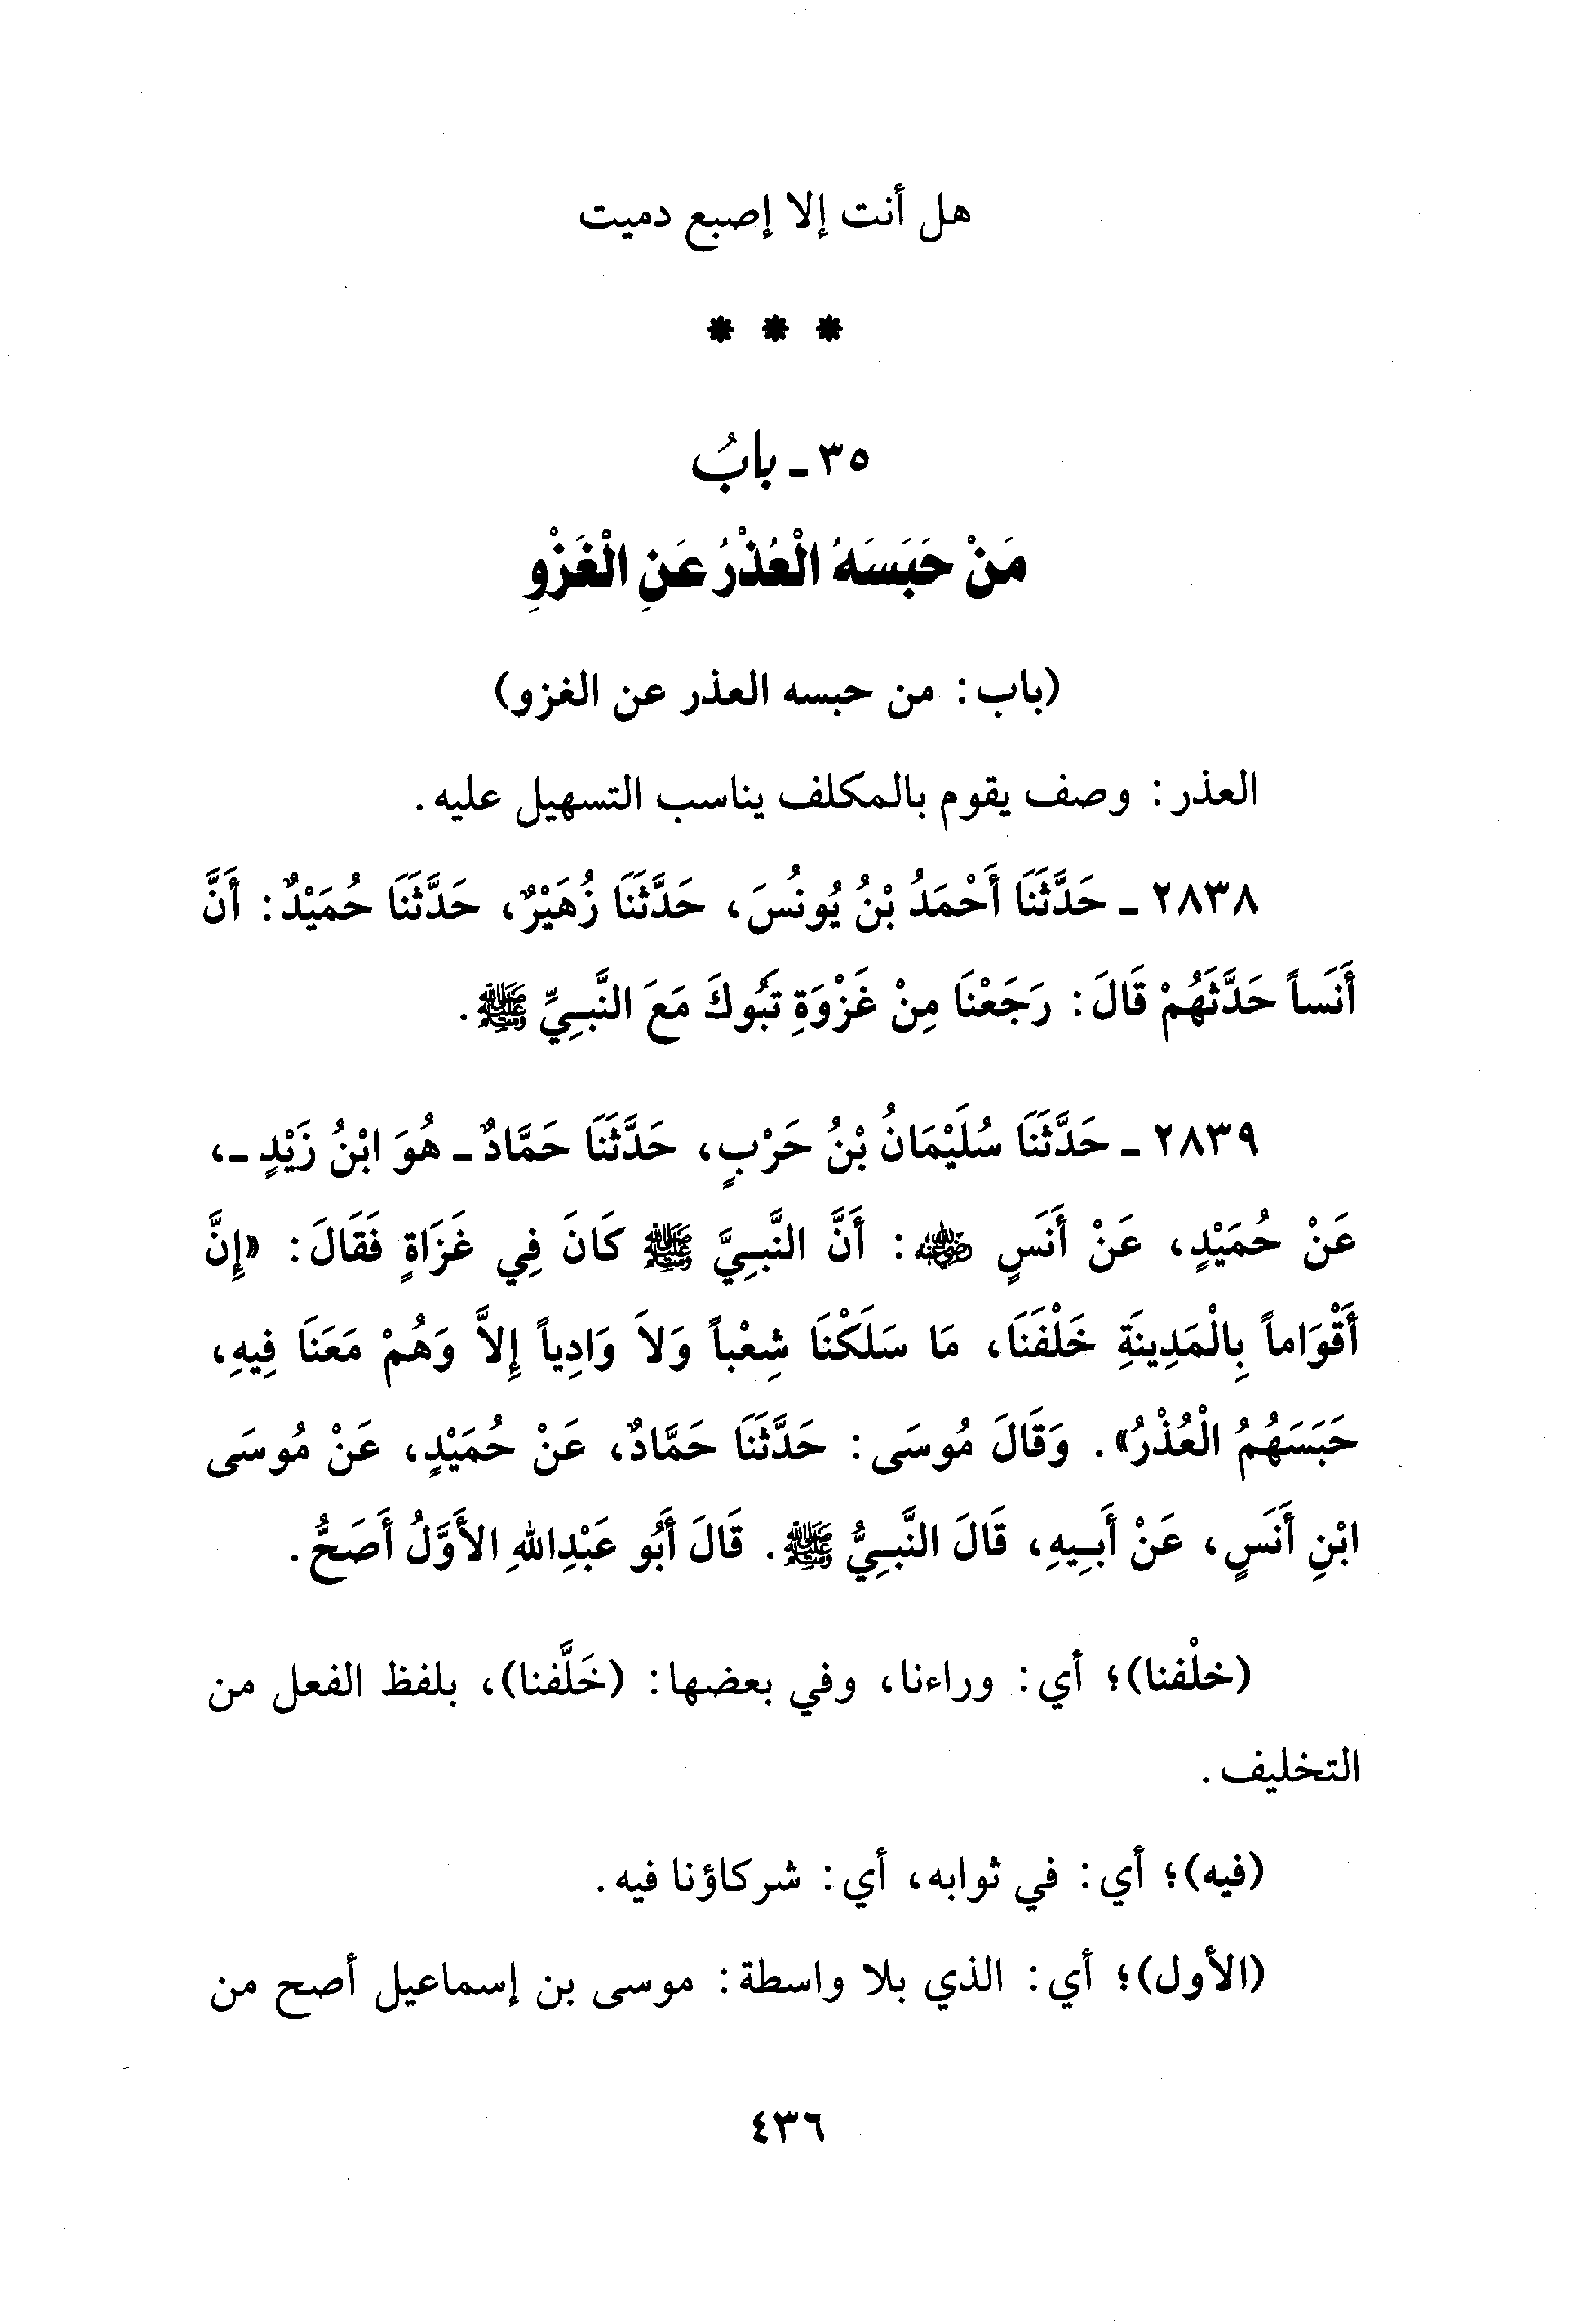 هل أنت إلا إصبع دميت
* * *
٣٥ ـ بابُ
مَنْ حَبَسَهُ الْعُذْرُ عَنِ الْغَزْوِ
(باب: من حبسه العذر عن الغزو)
العذر: وصف يقوم بالمكلف يناسب التسهيل عليه.
٢٨٣٨ ـ حَدَّثَنَا أَحْمَدُ بْنُ يُونُسَ، حَدَّثَنَا زُهَيْرٌ، حَدَّثَنَا حُمَيْدٌ: أَنَّ
أَنَساً حَدَّثَهُمْ قَالَ: رَجَعْنَا مِنْ غَزْوَةِ تَبُوكَ مَعَ النَّبِيِّ ﷺ.
٢٨٣٩ ـ حَدَّثَنَا سُلَيْمَانُ بْنُ حَرْبٍ، حَدَّثَنَا حَمَّادٌ ـ هُوَ ابْنُ زَيْدٍ ـ،
عَنْ حُمَيْدٍ، عَنْ أَنَسٍ رضي الله عنه: أَنَّ النَّبِيَّ ﷺ كَانَ فِي غَزَاةٍ فَقَالَ: «إِنَّ
أَقْوَاماً بِالْمَدِينَةِ خَلْفَنَا، مَا سَلَكْنَا شِعْباً وَلاَ وَادِياً إِلاَّ وَهُمْ مَعَنَا فِيهِ،
حَبَسَهُمُ الْعُذْرُ». وَقَالَ مُوسَى: حَدَّثَنَا حَمَّادٌ، عَنْ حُمَيْدٍ، عَنْ مُوسَى
ابْنِ أَنَسٍ، عَنْ أَبِيهِ، قَالَ النَّبِيُّ ﷺ. قَالَ أَبُو عَبْدِاللهِ الأَوَّلُ أَصَحُّ.
(خلْفنا)؛ أي: وراءنا، وفي بعضها: (خَلَّفنا)، بلفظ الفعل من
التخليف.
(فيه)؛ أي: في ثوابه، أي: شركاؤنا فيه.
(الأول)؛ أي: الذي بلا واسطة: موسى بن إسماعيل أصح من
٤٣٦